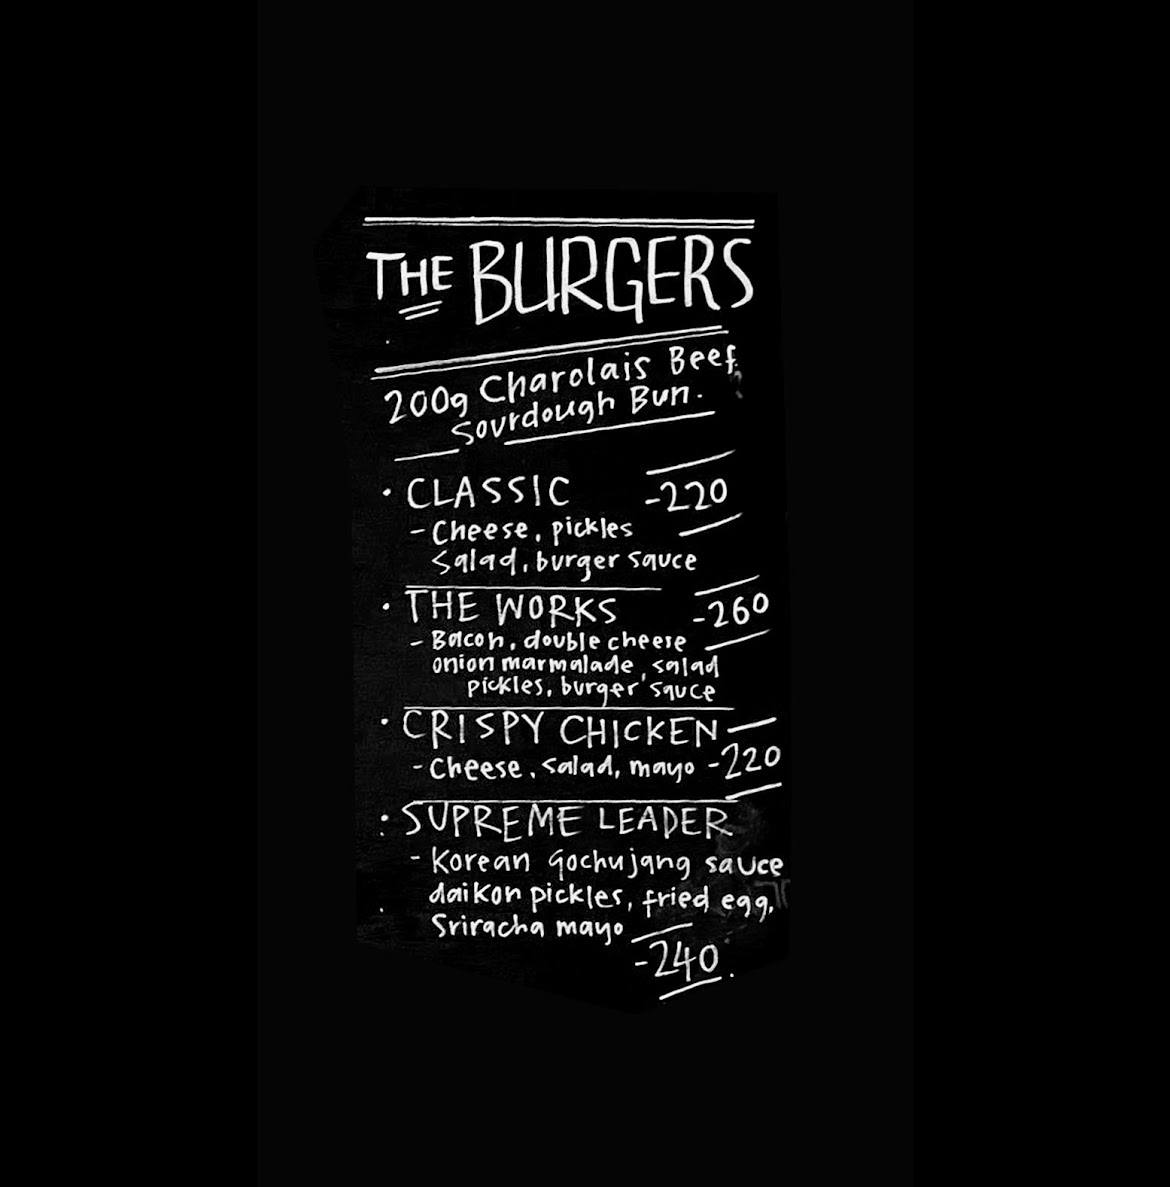 THE BURGERS
200g Charolais Beef
Sourdough Bun.
· CLASSIC -220
- Cheese, pickles
Salad, burger sauce
· THE WORKS -260
- Bacon, double cheese
onion marmalade, salad
pickles, burger sauce
· CRISPY CHICKEN
- Cheese, salad, mayo -220
· SUPREME LEADER
- Korean Gochujang sauce
daikon pickles, fried egg,
Sriracha mayo
-240.